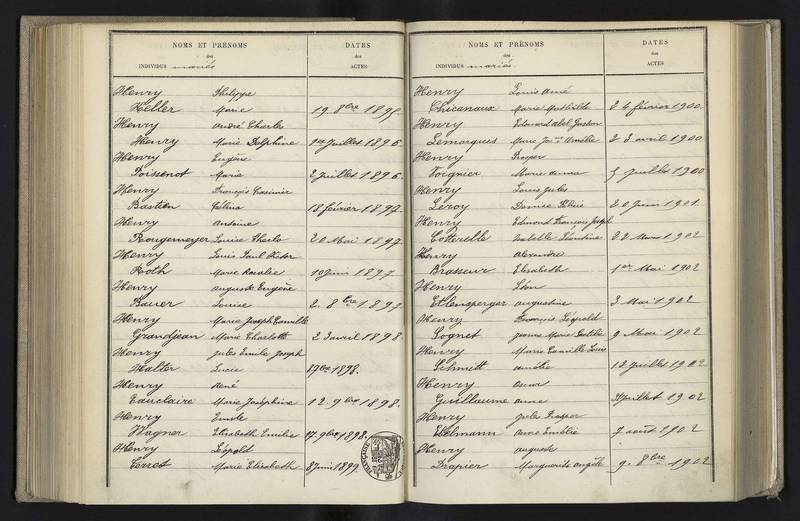 NOMS ET PRÉNOMS DATES
des des
INDIVIDUS mariés ACTES
Henry Philippe
Keller Marie 19 8bre 1895.
Henry André Charles
Henry Marie Delphine 1er Juillet 1896.
Henry Eugène
Poissenot Marie 2 Juillet 1896.
Henry François Casimir
Bastien 18 février 1897.
Henry Antoine
Rougemeyer Louise 20 Mai 1897.
Henry Louis Paul Victor
Roth Marie Rosalie 10 Juin 1897.
Henry Auguste Eugène
Bauer Louise 2. 8bre 1897.
Henry Marie Joseph Camille
Grandjean Marie Charlotte 23 avril 1898
Henry Jules Emile Joseph
Walter Lucie 1898.
Henry René
Educlaire Marie Joséphine 12. 9bre 1898.
Henry Emile
Wagner Elisabeth Emilie 17. 9bre 1898.
Henry Léopold
Terret Marie Elisabeth 8 Juin 1899
NOMS ET PRÉNOMS DATES
des des
INDIVIDUS mariés ACTES
Henry Louis Aimé
Chicanaux Marie Mathilde 26 février 1900.
Henry Edouard Abel Gaston
Lemarquis Marie 23 avril 1900.
Henry Prosper
Toignier Marie Juillet 1900
Henry Louis Jules
Léroy Denise 20 Juin 1901.
Henry Edmond François Joseph
Cotterelle Léontine 22 Mars 1902
Henry Alexandre
Brasseur Elisabeth 1er Mai 1902
Henry Léon
Etlensperger Augustine 3 Mai 1902
Henry François Léopold
Lognet Jeanne Marie 9 Mai 1902
Henry Marie Camille Louis
Schmitt Juillet 1902
Henry
Guillaume Anne Juillet 1902
Henry Jules Prosper
Ehlmann Anne août 1902
Henry Auguste
Drapier Marguerite Angèle 9. 8bre 1902